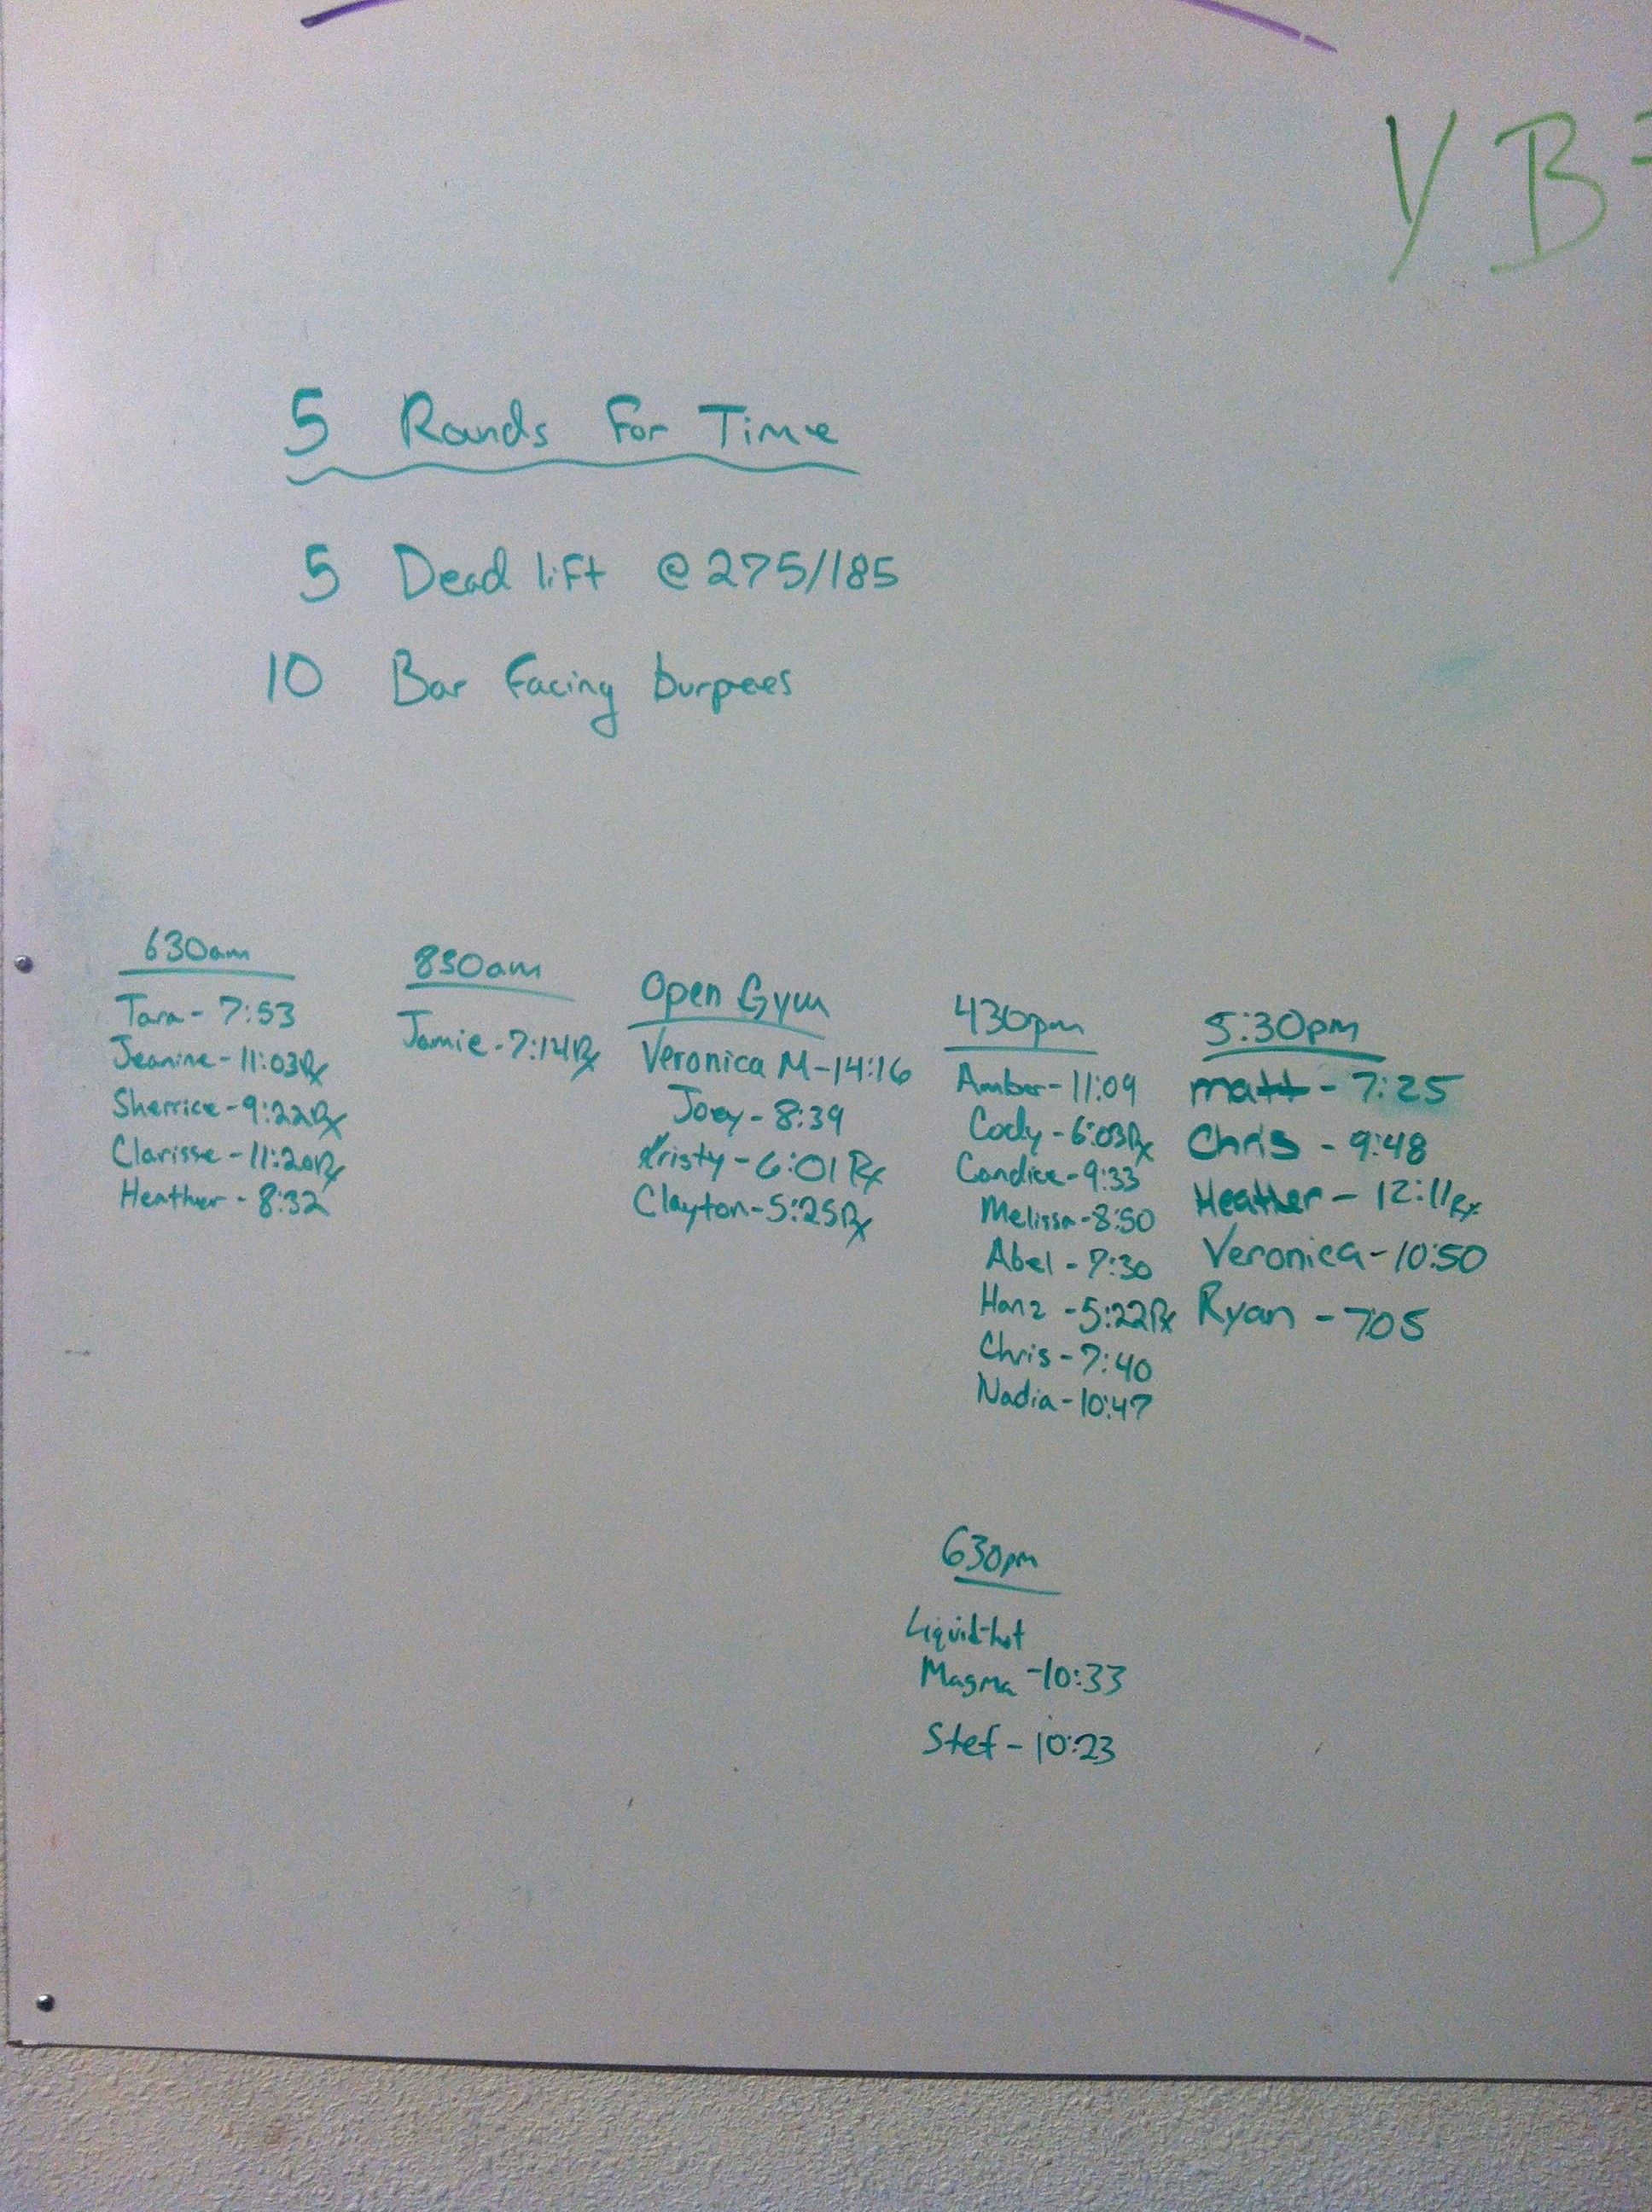 Y B
5 Rounds For Time
5 Dead lift @ 275/185
10 Bar Facing burpees
630am
Tara - 7:53
Jeanine - 11:03Rx
Sherrice - 9:22Rx
Clarisse - 11:20Rx
Heather - 8:32
830am
Jamie - 7:14Rx
Open Gym
Veronica M - 14:16
Joey - 8:39
Kristy - 6:01 Rx
Clayton - 5:25Rx
430pm
Amber - 11:09
Cody - 6:03Rx
Candice - 9:33
Melissa - 8:50
Abel - 7:30
Hanz - 5:22Rx
Chris - 7:40
Nadia - 10:47
5:30pm
matt - 7:25
Chris - 9:48
Heather - 12:11Rx
Veronica - 10:50
Ryan - 705
630pm
Liquid-hot
Magma - 10:33
Stef - 10:23